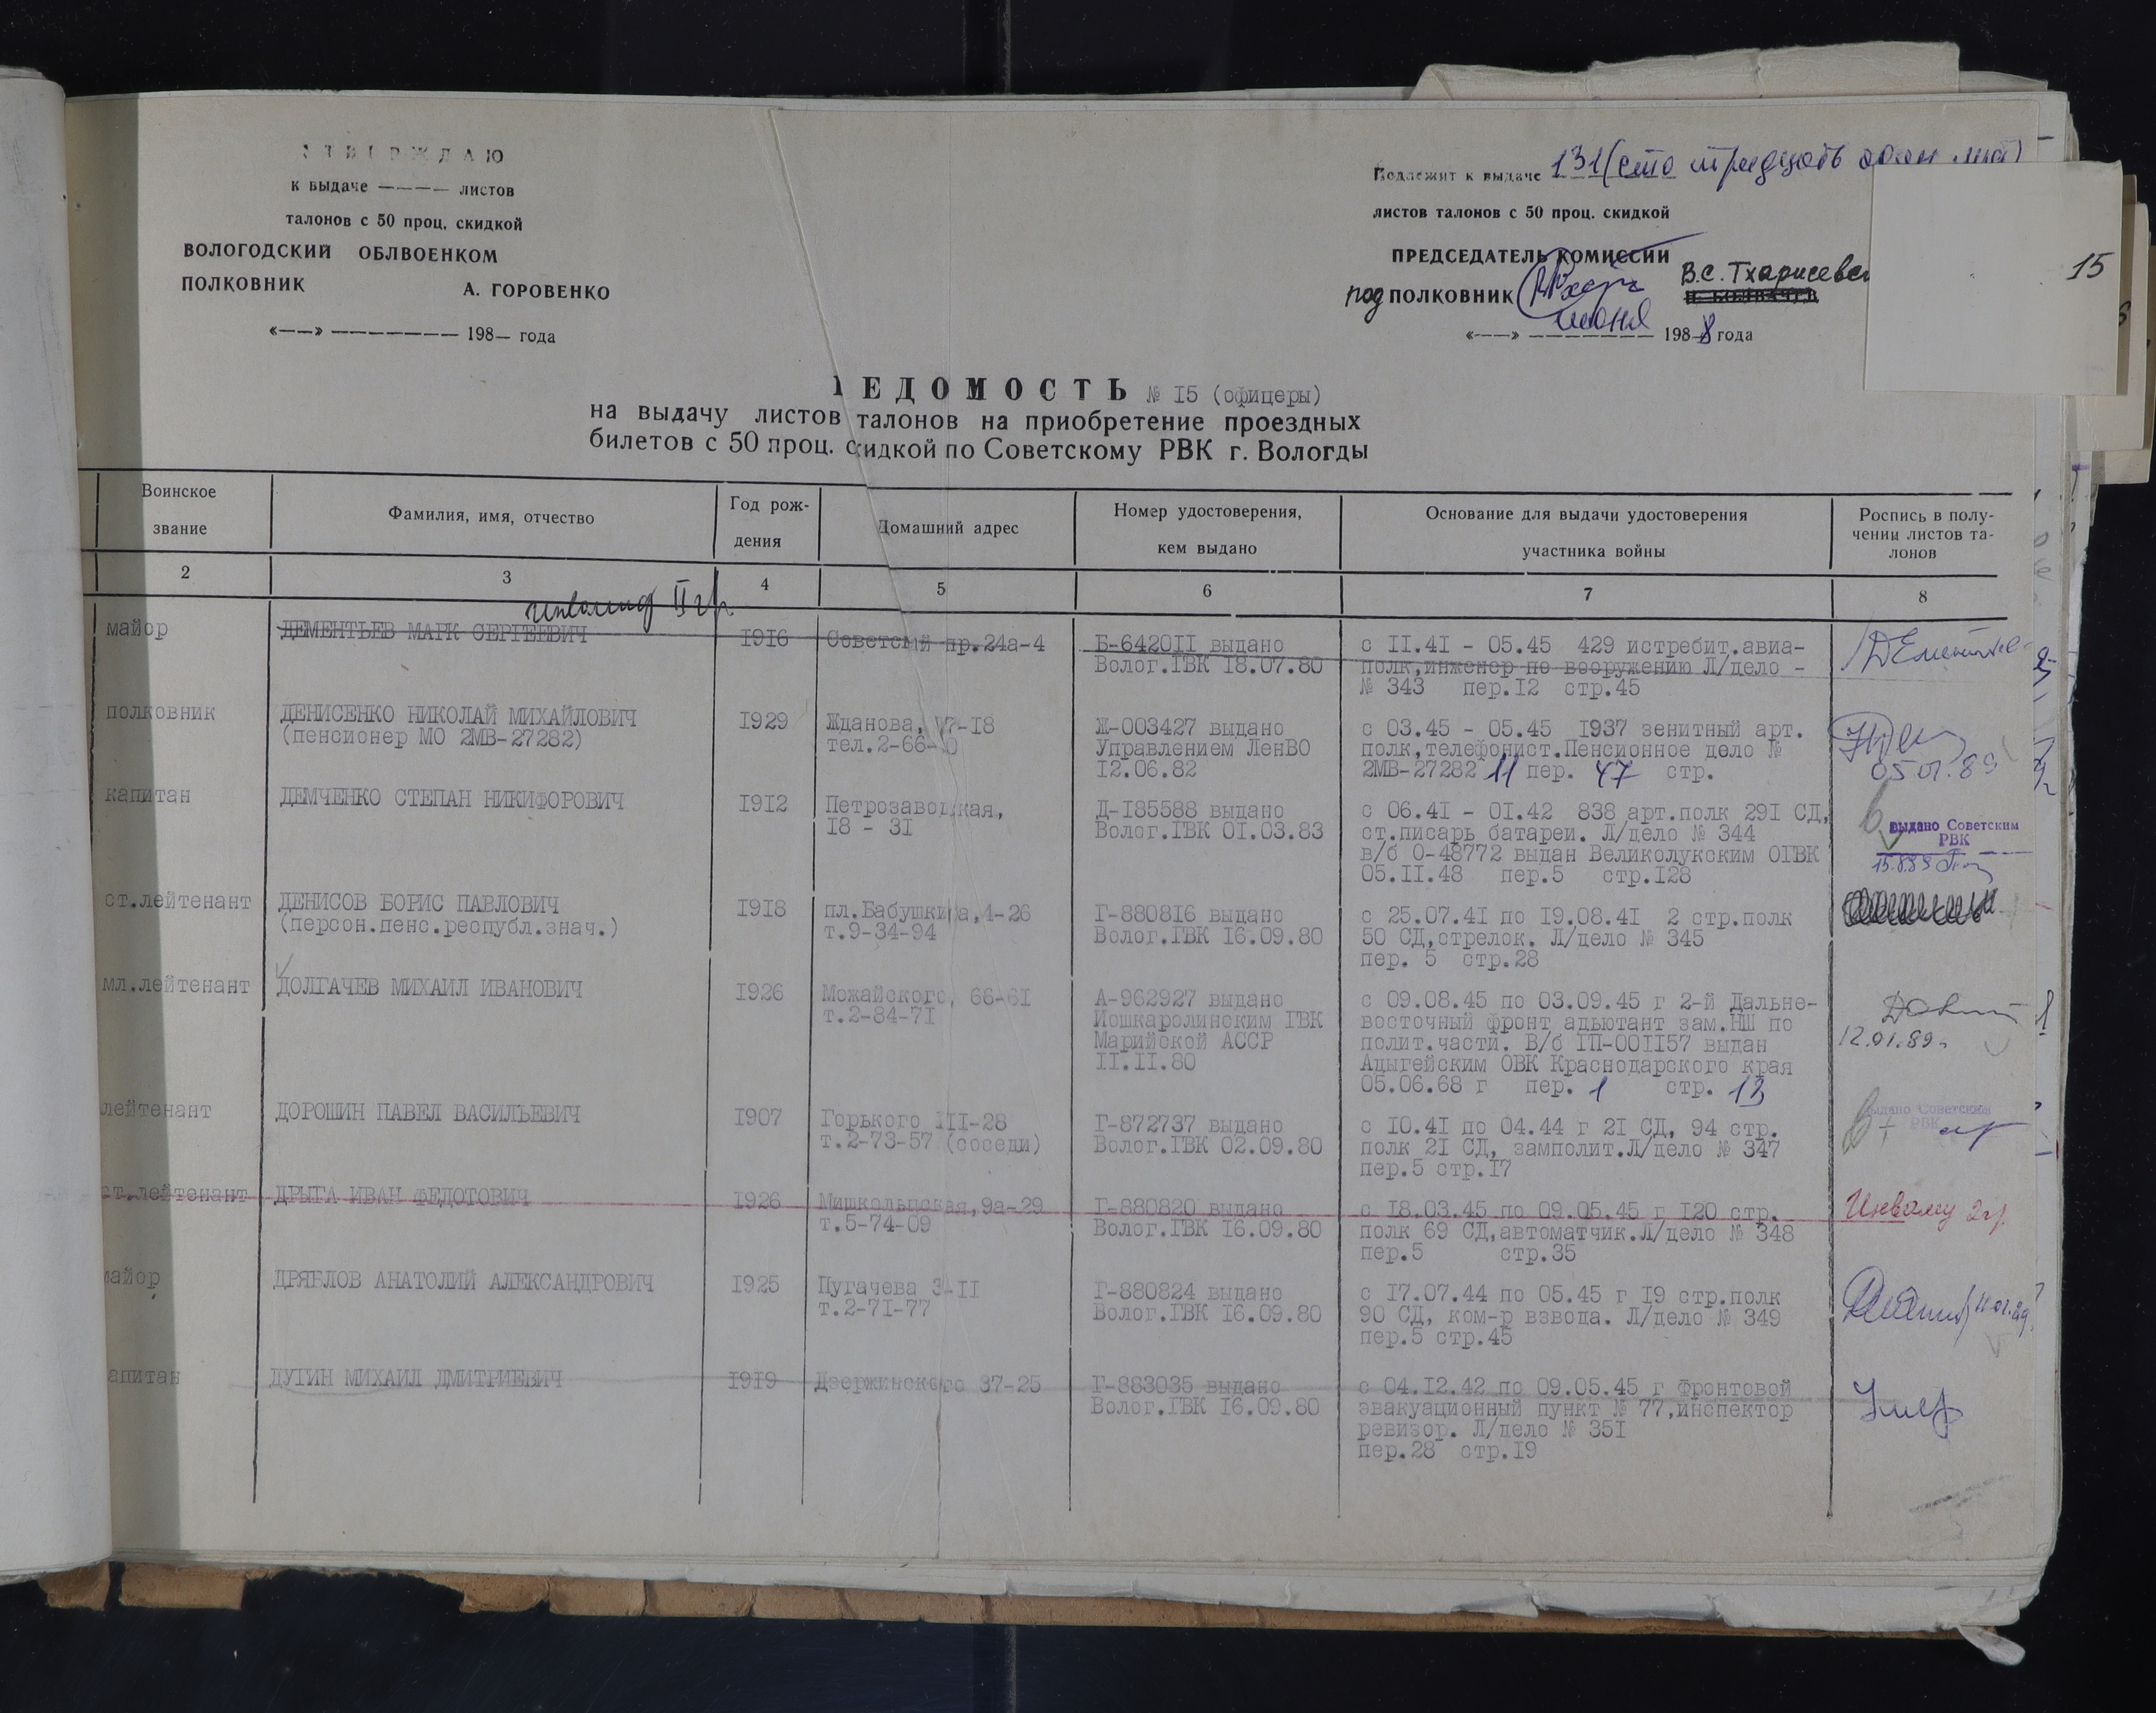 УТВЕРЖДАЮ
к выдаче ———— листов
талонов с 50 проц. скидкой
ВОЛОГОДСКИЙ ОБЛВОЕНКОМ
ПОЛКОВНИК А. ГОРОВЕНКО
«——» ——————— 198— года
Подлежит к выдаче 131 (сто тридцать один лист)
листов талонов с 50 проц. скидкой
ПРЕДСЕДАТЕЛЬ КОМИССИИ
подПОЛКОВНИК В.С.
июня
«——» 1988 года
15
ВЕДОМОСТЬ № I5 (офицеры)
на выдачу листов талонов на приобретение проездных
билетов с 50 проц. скидкой по Советскому РВК г. Вологды
Воинское звание
Фамилия, имя, отчество
Год рож-
дения
Домашний адрес
Номер удостоверения,
кем выдано
Основание для выдачи удостоверения
участника войны
Роспись в полу-
чении листов та-
лонов
2 3 4 5 6 7 8
инвалид II гр.
майор ДЕМЕНТЬЕВ МАРК СЕРГЕЕВИЧ I9I6 Советский пр.24а-4 Б-6420II выдано с II.4I - 05.45 429 истребит.авиа-
Волог.ГВК I8.07.80 полк,инженер по вооружению Л/дело -
№ 343 пер.I2 стр.45
полковник ДЕНИСЕНКО НИКОЛАЙ МИХАЙЛОВИЧ I929 Жданова, 7-I8 Ж-003427 выдано с 03.45 - 05.45 I937 зенитный арт.
(пенсионер МО 2МВ-27282) тел.2-66- Управлением ЛенВО полк,телефонист.Пенсионное дело №
I2.06.82 2МВ-27282 11 пер. 47 стр.
05.01.89
капитан ДЕМЧЕНКО СТЕПАН НИКИФОРОВИЧ I9I2 Петрозаводская, Д-I85588 выдано с 06.4I - 0I.42 838 арт.полк 29I СД,
I8 - 3I Волог.ГВК 0I.03.83 ст.писарь батареи. Л/дело № 344
в/б 0-48772 выдан Великолукским ОГВК
05.II.48 пер.5 стр.I28
выдано Советским
РВК
ст.лейтенант ДЕНИСОВ БОРИС ПАВЛОВИЧ I9I8 пл.Бабушкина,4-26 Г-8808I6 выдано с 25.07.4I по I9.08.4I 2 стр.полк
(персон.пенс.республ.знач.) т.9-34-94 Волог.ГВК I6.09.80 50 СД,стрелок. Л/дело № 345
пер. 5 стр.28
мл.лейтенант ДОЛГАЧЕВ МИХАИЛ ИВАНОВИЧ I926 Можайского, 66-6I А-962927 выдано с 09.08.45 по 03.09.45 г 2-й Дальне-
т.2-84-7I Йошкаролинским ГВК восточный фронт адьютант зам.НШ по
Марийской АССР полит.части. В/б ГП-00II57 выдан
II.II.80 Адыгейским ОВК Краснодарского края
05.06.68 г пер. 1 стр. 13
12.01.89
лейтенант ДОРОШИН ПАВЕЛ ВАСИЛЬЕВИЧ I907 Горького III-28 Г-872737 выдано с I0.4I по 04.44 г 2I СД, 94 стр.
т.2-73-57 (соседи) Волог.ГВК 02.09.80 полк 2I СД, замполит.Л/дело № 347
пер.5 стр.I7
выдано Советским
РВК
ст.лейтенант ДРЫГА ИВАН ФЕДОТОВИЧ I926 Мишкольцская,9а-29 Г-880820 выдано с I8.03.45 по 09.05.45 г I20 стр.
т.5-74-09 Волог.ГВК I6.09.80 полк 69 СД,автоматчик.Л/дело № 348
пер.5 стр.35
2 гр.
майор ДРЯБЛОВ АНАТОЛИЙ АЛЕКСАНДРОВИЧ I925 Пугачева 3-II Г-880824 выдано с I7.07.44 по 05.45 г I9 стр.полк
т.2-7I-77 Волог.ГВК I6.09.80 90 СД, ком-р взвода. Л/дело № 349
пер.5 стр.45
капитан ДУГИН МИХАИЛ ДМИТРИЕВИЧ I9I9 Дзержинского 37-25 Г-883035 выдано с 04.I2.42 по 09.05.45 г Фронтовой
Волог.ГВК I6.09.80 эвакуационный пункт № 77,инспектор
ревизор. Л/дело № 35I
пер.28 стр.I9
Умер